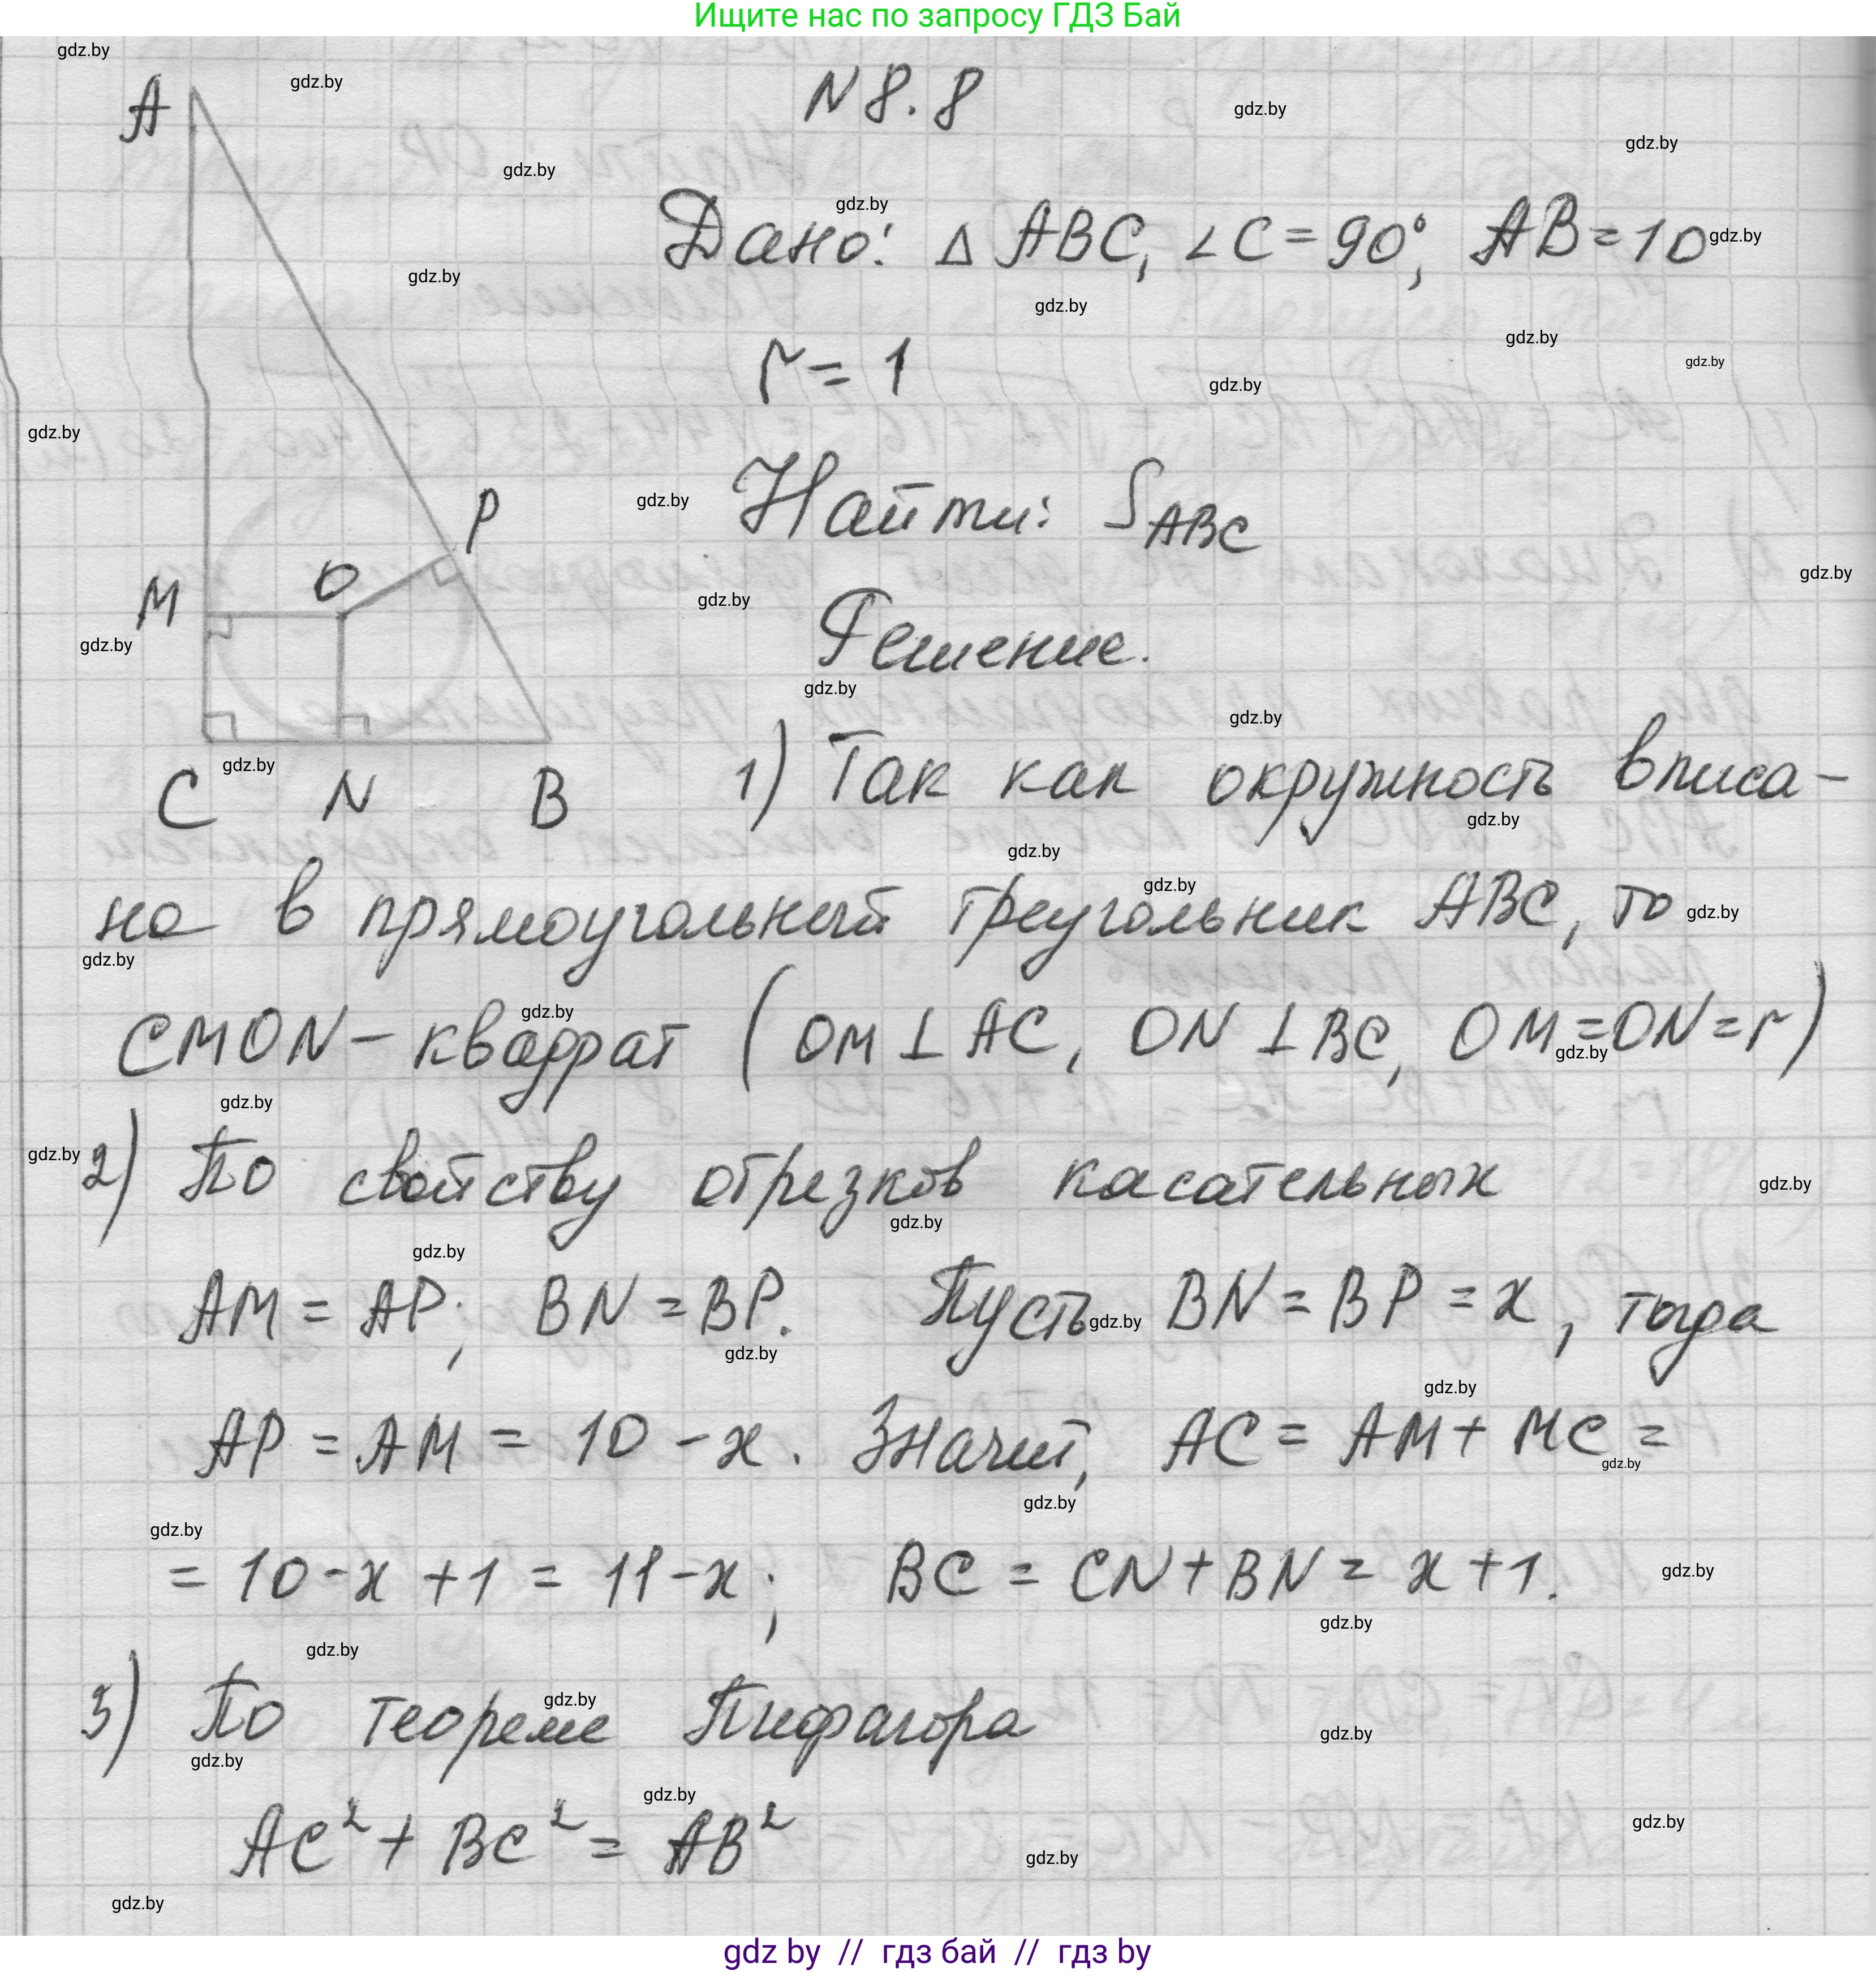 Ищите нас по запросу ГДЗ Бай
N 8.8
A
Дано: Δ ABC, ∠C = 90°, AB = 10
r = 1
Найти: S_ABC
P
O
M
Решение.
C N B
1) Так как окружность вписа-
на в прямоугольный треугольник ABC, то
CMON - квадрат (OM ⊥ AC, ON ⊥ BC, OM = ON = r)
2) По свойству отрезков касательных
AM = AP; BN = BP. Пусть BN = BP = x, тогда
AP = AM = 10 - x. Значит, AC = AM + MC =
= 10 - x + 1 = 11 - x; BC = CN + BN = x + 1.
3) По теореме Пифагора
AC² + BC² = AB²
gdz by // гдз бай // гдз by